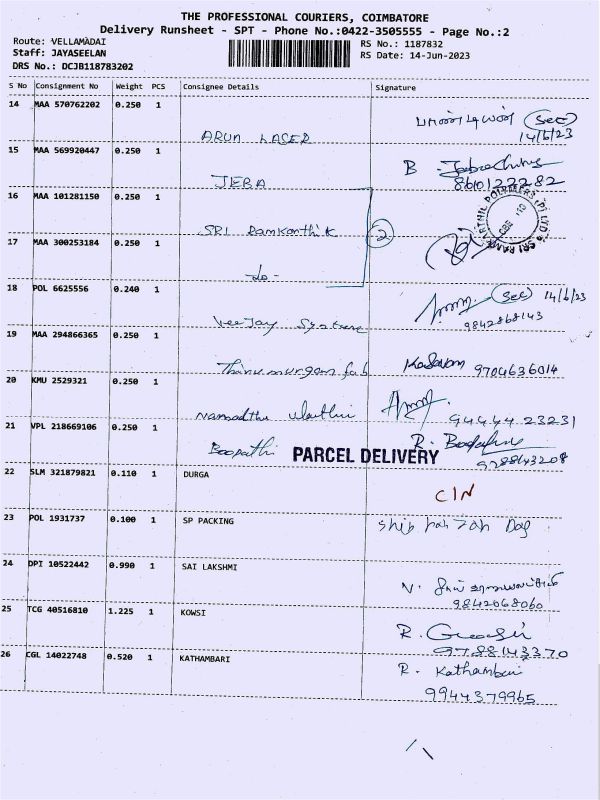 THE PROFESSIONAL COURIERS, COIMBATORE
Delivery Runsheet - SPT - Phone No.:0422-3505555 - Page No.:2
Route: VELLAMADAI
RS No.: 1187832
Staff: JAYASEELAN
RS Date: 14-Jun-2023
DRS No.: DCJB118783202
S No Consignment No Weight PCS Consignee Details Signature
14 MAA 570762202 0.250 1
ARUN LASER
(Sec)
14/6/23
15 MAA 569920447 0.250 1
JEBA
B
8610122282
16 MAA 101281150 0.250 1
SRI Ramkanthik
2
17 MAA 300253184 0.250 1
-do-
18 POL 6625556 0.240 1
VeeJay
(Sec) 14/6/23
9842868143
19 MAA 294866365 0.250 1
Thirumurgan fab
9704636014
20 KMU 2529321 0.250 1
94444 23231
21 VPL 218669106 0.250 1
Boopathi
PARCEL DELIVERY
R.
9788143208
22 SLM 321879821 0.110 1 DURGA
CIN
23 POL 1931737 0.100 1 SP PACKING
24 DPI 10522442 0.990 1 SAI LAKSHMI
N.
9842068060
25 TCG 40516810 1.225 1 KOWSI
R.
9788143370
26 CGL 14022748 0.520 1 KATHAMBARI
R. Kathambari
9944379965